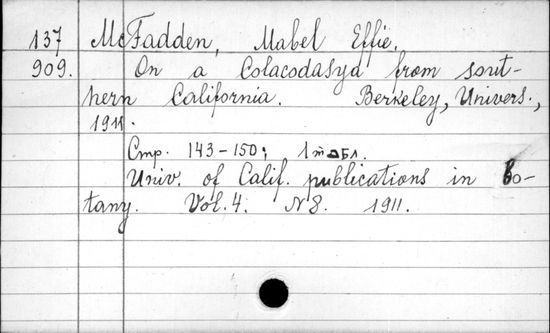 137 McFadden, Mabel Effie.
909. On a Colacodasya from sout-
hern California. Berkeley, Univers.,
1911.
Стр. 143-150; 1 табл.
Univ. of Calif. publications in Bo-
tany. Vol. 4. N 8. 1911.